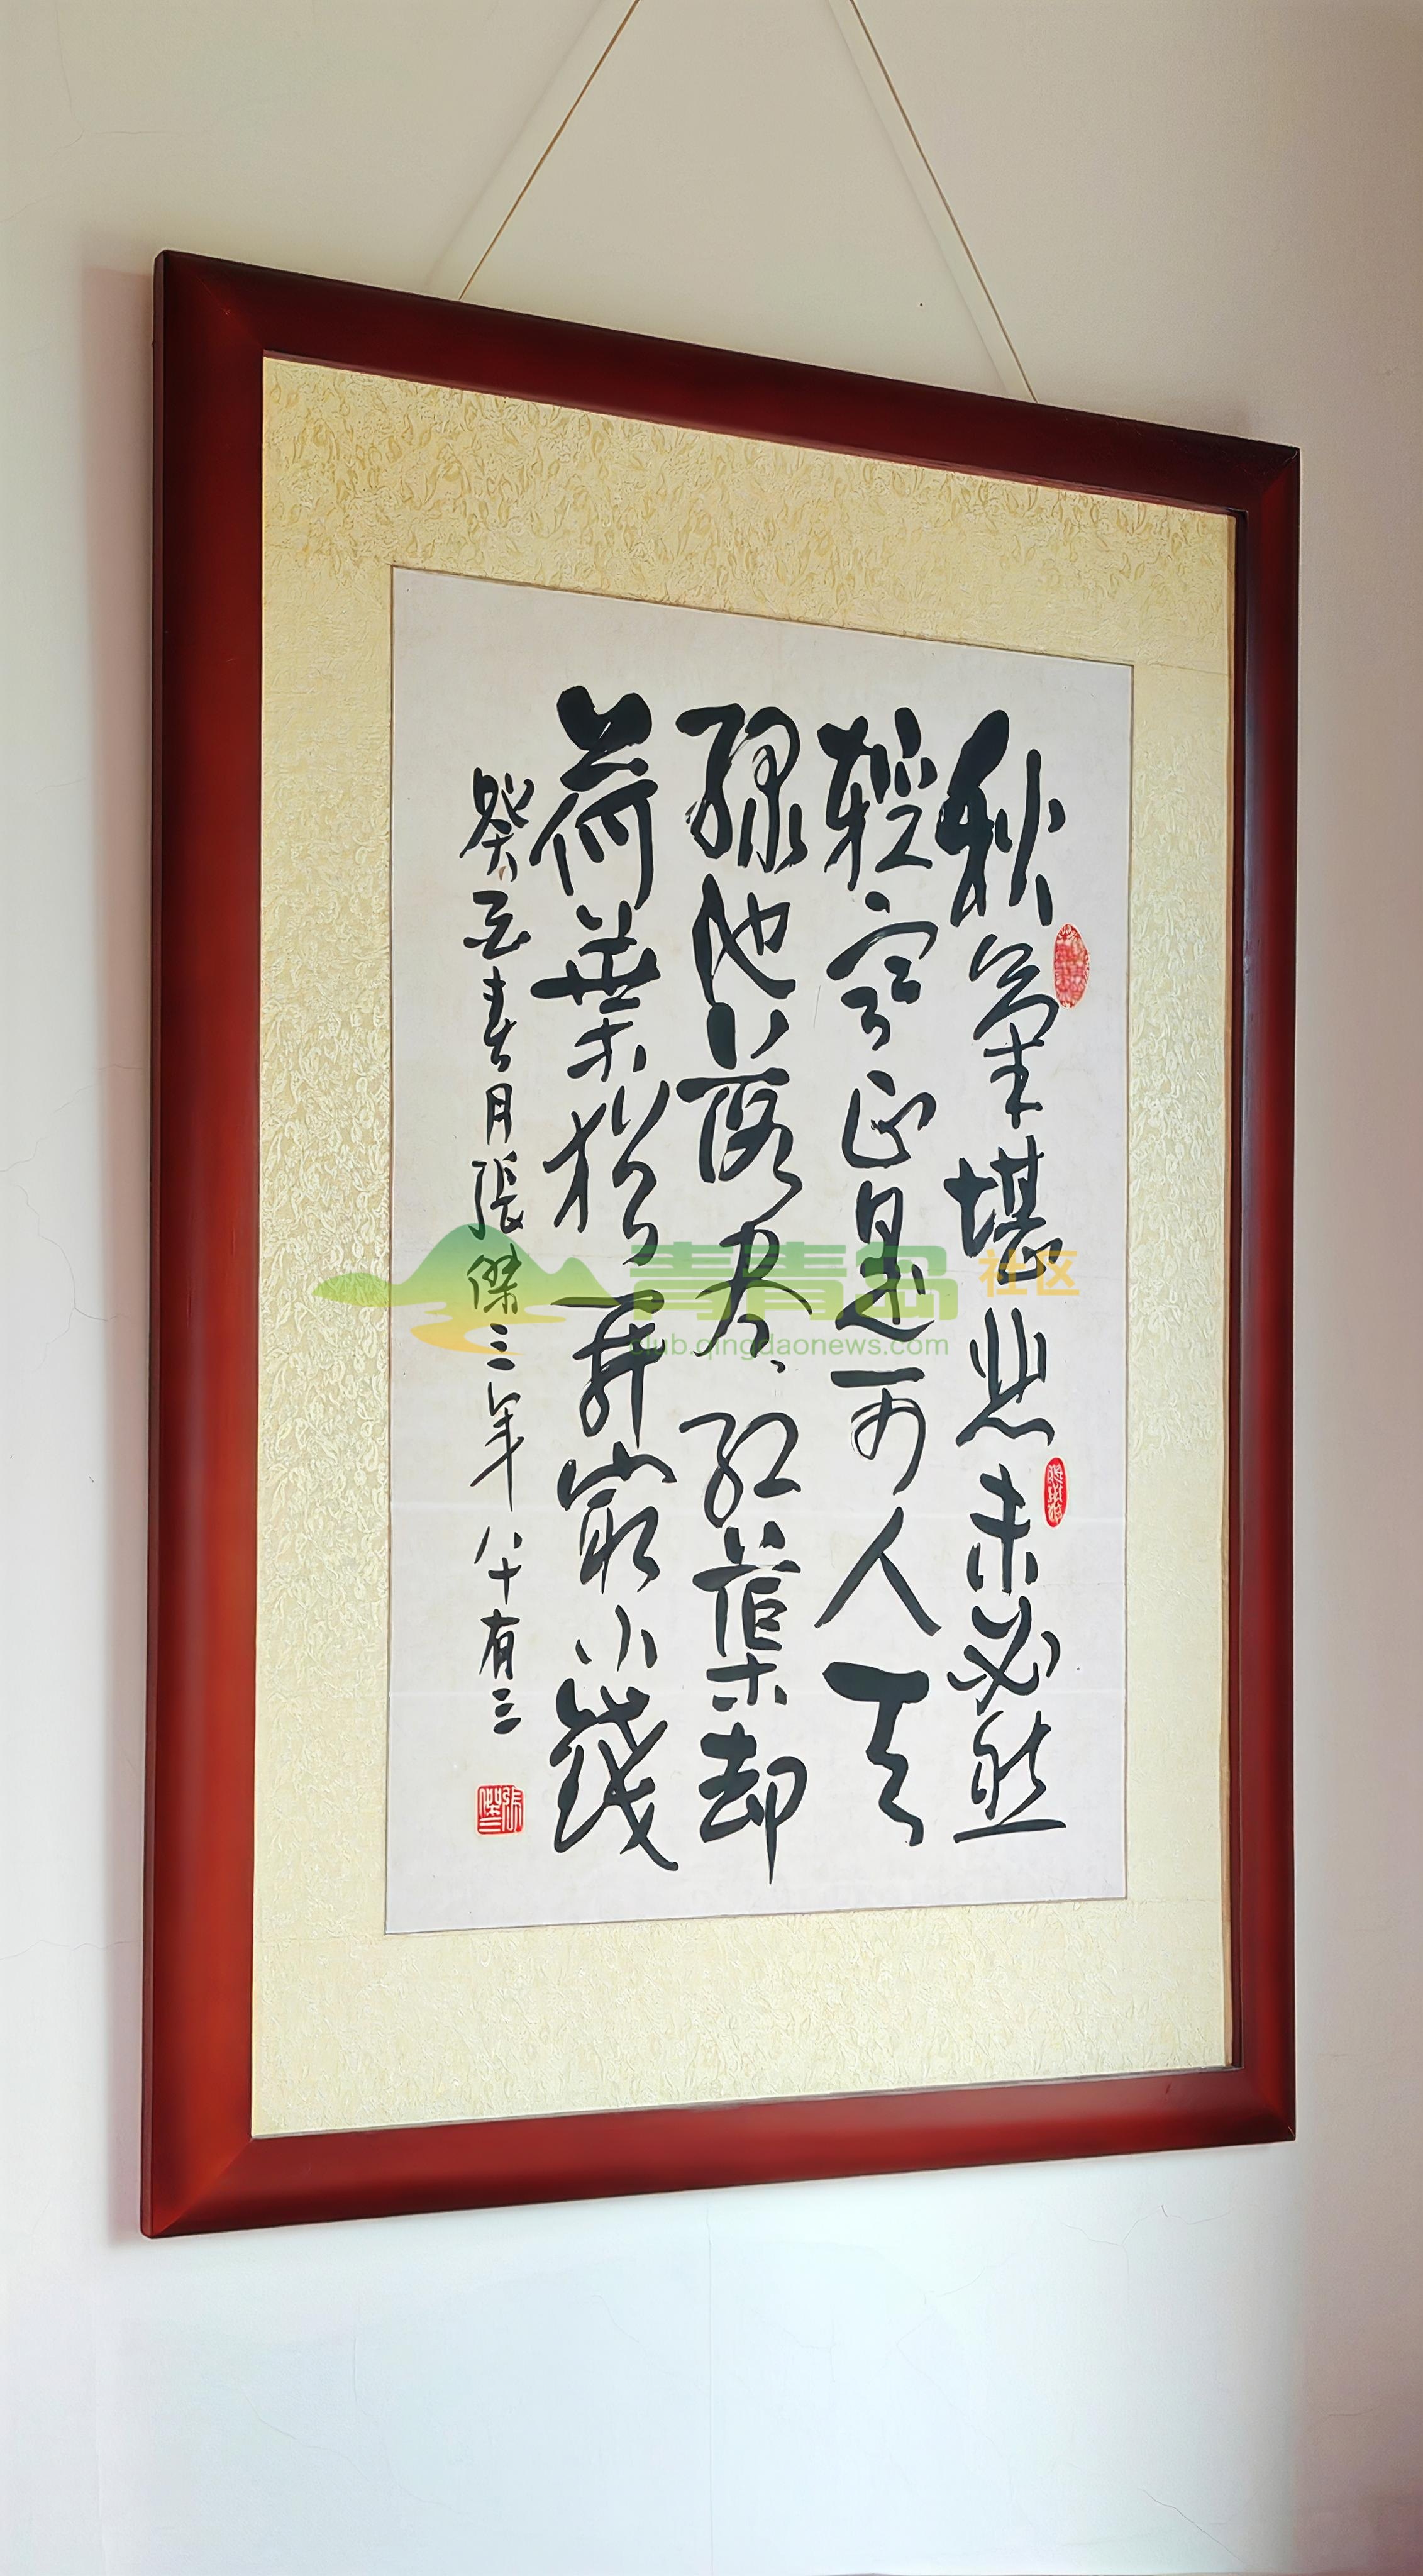 秋氣堪悲未必然
輕寒正是可人天
綠池落尽紅蕖却
荷葉猶開最小錢
癸酉春月張傑三年八十有三
張傑三
青青岛社区
club.qingdaonews.com